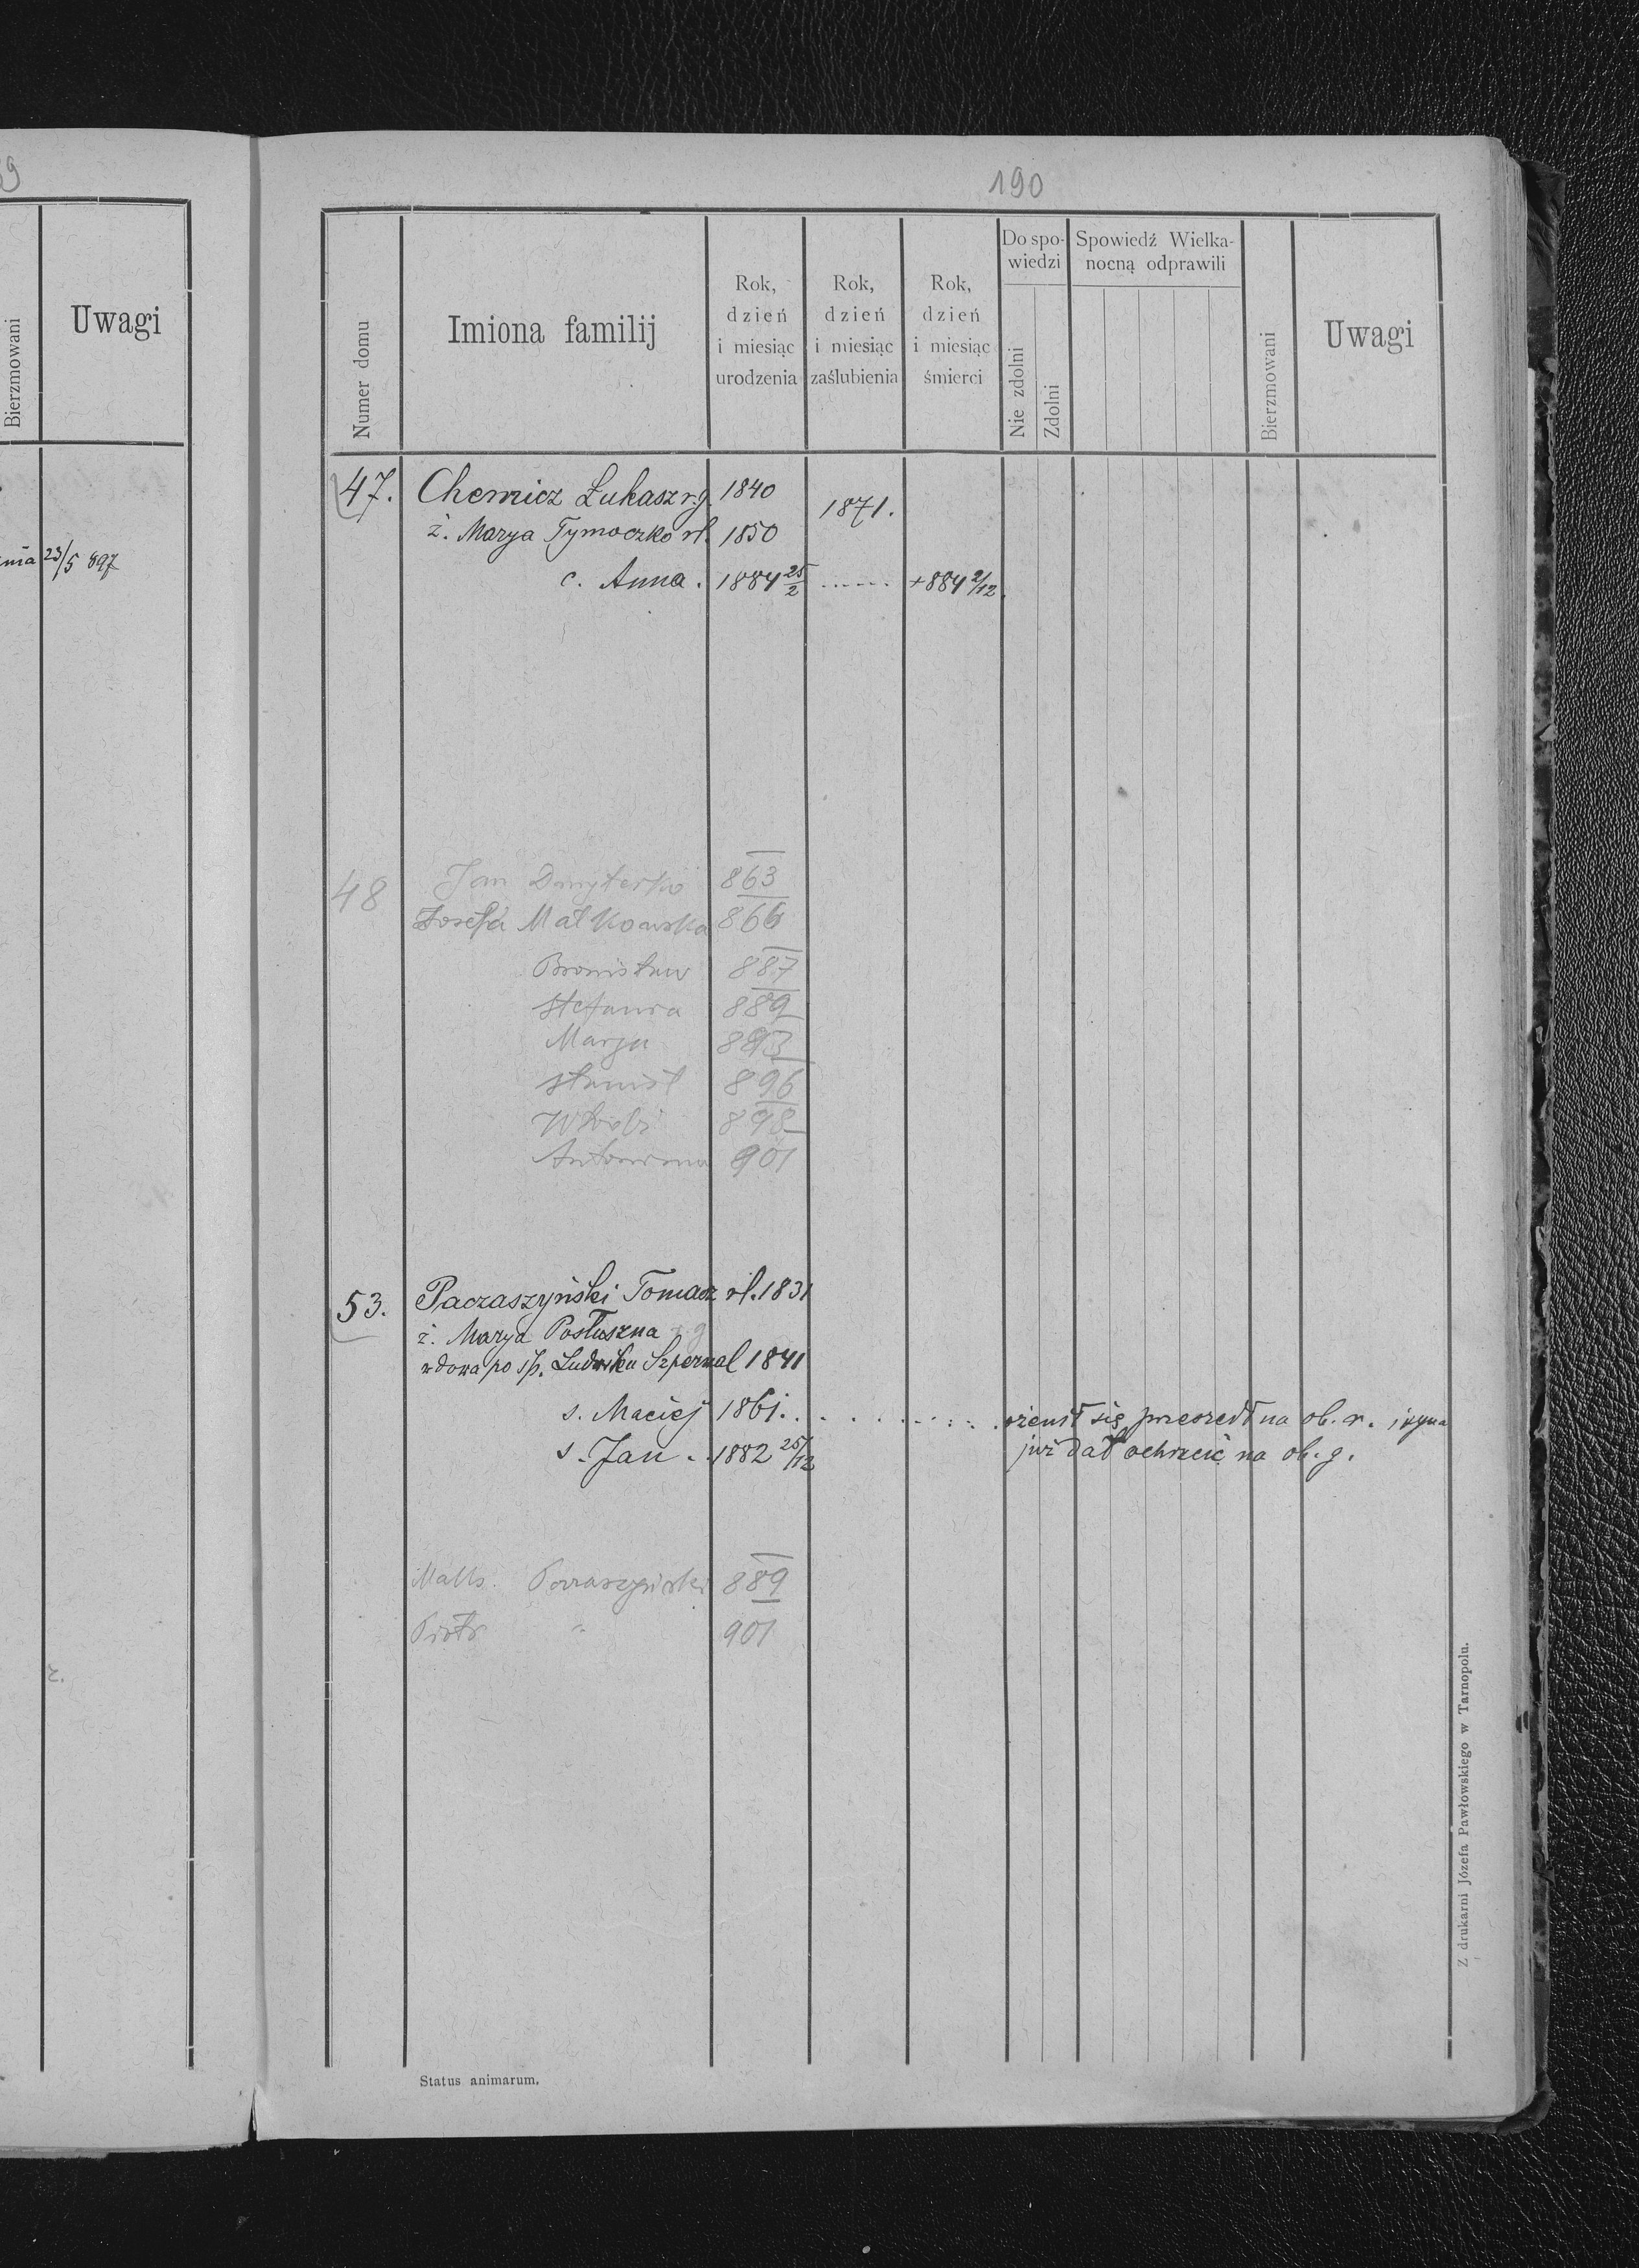 9
Bierzmowani
Uwagi
nia 23/5 897
ż.
190
Numer domu
Imiona familij
Rok, dzień i miesiąc urodzenia
Rok, dzień i miesiąc zaślubienia
Rok, dzień i miesiąc śmierci
Do spowiedzi
Nie zdolni
Zdolni
Spowiedź Wielkanocną odprawili
Bierzmowani
Uwagi
47. Chemicz Łukasz r.g. 1840
1871.
ż. Marya Tymoczko rł. 1850
c. Anna. 1884 25/2 ...... +884 2/12
48 Jan Dmyterko 863
Josefa Małkowska 866
Bronisław 887
Stefania 889
Marya 893
Stanisł 896
898
Antonina 901
53. Paczaszyński Tomasz rł. 1831
ż. Marya Posłuszna g
wdowa po śp. Ludwiku Szpernal 1841
s. Maciej 1861. . . . . . . . . ożenił się, przeszedł na ob. r. i syna
s. Jan . . 1882 25/12 już dał ochrzcić na ob. g.
Paczaszyński 889
Piotr " 901
Status animarum.
Z drukarni Józefa Pawłowskiego w Tarnopolu.